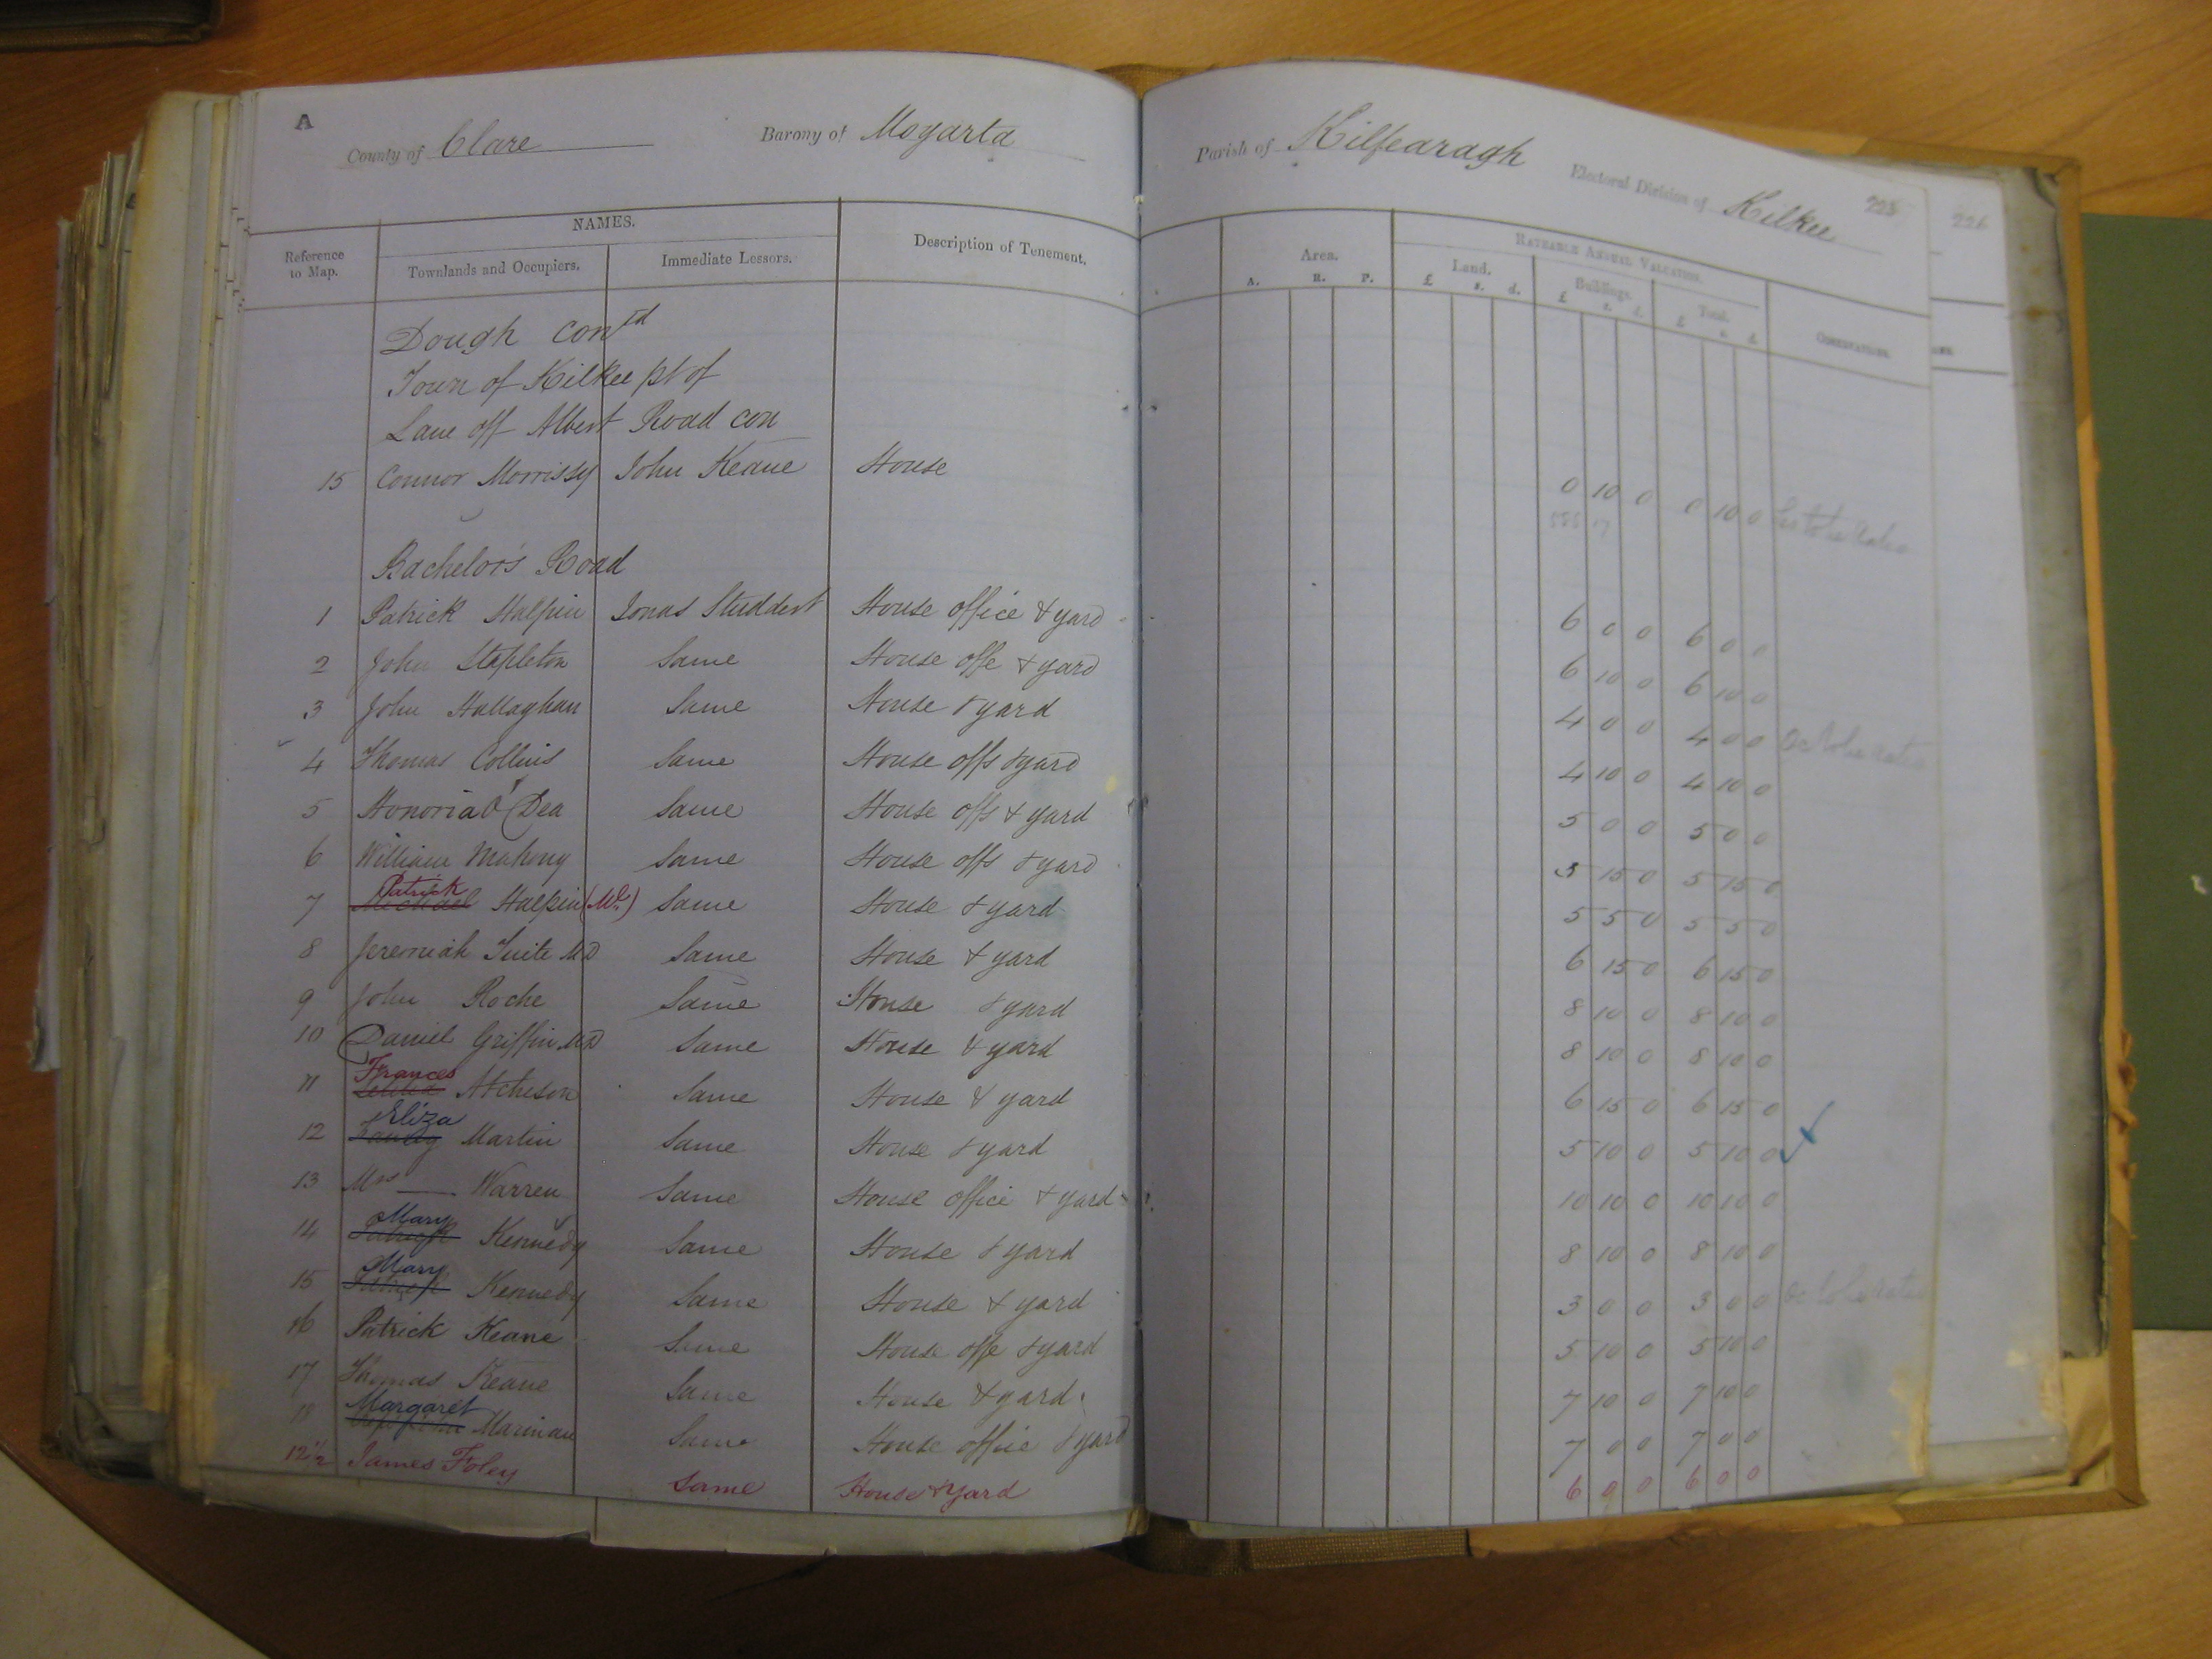 A
County of Clare Barony of Moyarta Parish of Kilfearagh Electoral Division of Kilkee 225 226
NAMES. RATEABLE ANNUAL VALUATION.
Reference to Map. Townlands and Occupiers. Immediate Lessors. Description of Tenement. Area. Land. Buildings. Total. OBSERVATIONS.
A. R. P. £ s. d. £ s. d. £ s. d.
Dough contd
Town of Kilkee pt of
Lane off Albert Road con
15 Connor Morrissy John Keane House 0 10 0 0 10 0
Bachelor's Road
1 Patrick Halpin Jonas Studdert House office & yard 6 0 0 6 0 0
2 John Stapleton Same House offe & yard 6 10 0 6 10 0
3 John Hallaghan Same House & yard 4 0 0 4 0 0
4 Thomas Collins Same House offs & yard 4 10 0 4 10 0
5 Honoria O'Dea Same House offs & yard 5 0 0 5 0 0
6 William Mahony Same House offs & yard 5 15 0 5 15 0
Patrick
7 Michael Halpin Same House & yard 5 5 0 5 5 0
8 Jeremiah Tuite MD Same House & yard 6 15 0 6 15 0
9 John Roche Same House & yard 8 10 0 8 10 0
10 Daniel Griffin MD Same House & yard 8 10 0 8 10 0
Frances
11 Atcheson Same House & yard 6 15 0 6 15 0
Eliza
12 Martin Same House & yard 5 10 0 5 10 0
13 Mrs — Warren Same House office & yard 10 10 0 10 10 0
Mary
14 Patrick Kennedy Same House & yard 8 10 0 8 10 0
Mary
15 Patrick Kennedy Same House & yard 3 0 0 3 0 0
16 Patrick Keane Same House offe & yard 5 10 0 5 10 0
17 Thomas Keane Same House & yard 7 10 0 7 10 0
Margaret
18 Marinan Same House office & yard 7 0 0 7 0 0
12½ James Foley Same House & Yard 6 0 0 6 0 0